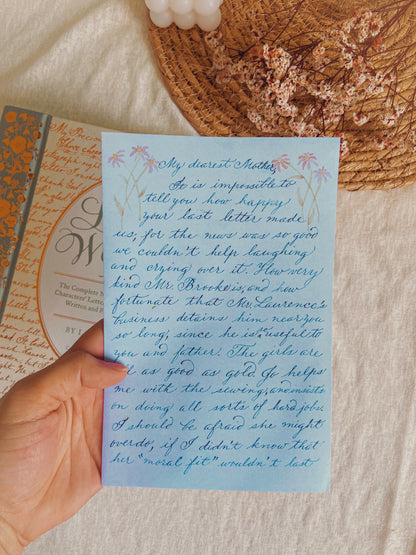 My dearest Mother,
It is impossible to
tell you how happy
your last letter made
us, for the news was so good
we couldn't help laughing
and crying over it. How very
kind Mr. Brooke is, and how
fortunate that Mr. Laurence's
business detains him near you
so long, since he is so useful to
you and father! The girls are
all as good as gold. Jo helps
me with the sewing, and insists
on doing all sorts of hard jobs.
I should be afraid she might
overdo, if I didn't know that
her "moral fit" wouldn't last
The Complete N
Characters' Letter
Written and F
BY L